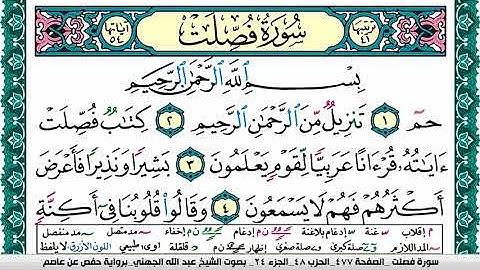 ترتيبها ٤١ سُورَةُ فُصِّلَتْ آياتها ٥٤
بِسْمِ ٱللَّهِ ٱلرَّحْمَٰنِ ٱلرَّحِيمِ
حمٓ ١ تَنزِيلٌ مِّنَ ٱلرَّحْمَٰنِ ٱلرَّحِيمِ ٢ كِتَٰبٌ فُصِّلَتْ
ءَايَٰتُهُۥ قُرْءَانًا عَرَبِيًّا لِّقَوْمٍ يَعْلَمُونَ ٣ بَشِيرًا وَنَذِيرًا فَأَعْرَضَ
أَكْثَرُهُمْ فَهُمْ لَا يَسْمَعُونَ ٤ وَقَالُوا۟ قُلُوبُنَا فِىٓ أَكِنَّةٍ
م إقلاب غنة إدغام بلاغنة إدغام إخفاء مد متصل مد منفصل
المد اللازم صلة كبرى صلة صغرى إظهار قلقلة طبيعي اللون الأزرق لا يلفظ
سورة فصلت _الصفحة ٤٧٧_الحزب ٤٨_الجزء ٢٤_ بصوت الشيخ عبد الله الجهني_برواية حفص عن عاصم